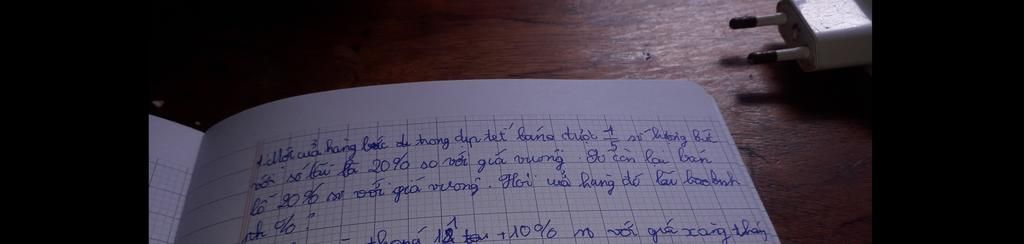 1. Một cửa hàng bán dụ trong dịp tết bán được 4/5 số lượng
với số lãi là 20% so với giá vương. Số còn lại bán
lỗ 20% so với giá vương. Hỏi cửa hàng đó lãi
%?
tháng +10% so với giá xăng tháng